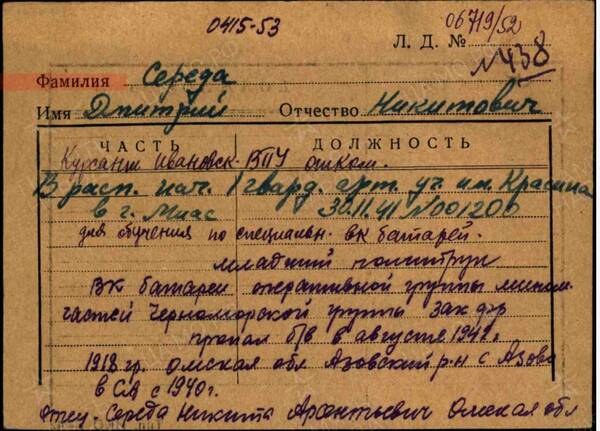 0415-53
06719/52
Л. Д. №
№438
Фамилия Середа
Имя Дмитрий Отчество Никитович
ЧАСТЬ ДОЛЖНОСТЬ
Курсант Ивановск. ВПУ оником.
В расп. нач. 1 гвард. арт. уч. им. Красина
в г. Миас 30.11.41 №001200
для обучения по специальн. вк батарей.
младший политрук
ВК батареи оперативной группы мином.
частей Черноморской группы Зак фр
пропал б/в в августе 1942г.
1918гр. Омская обл Азовский р-н с Азово
в СА с 1940г.
отец - Середа Никита Арсентьевич Омская обл